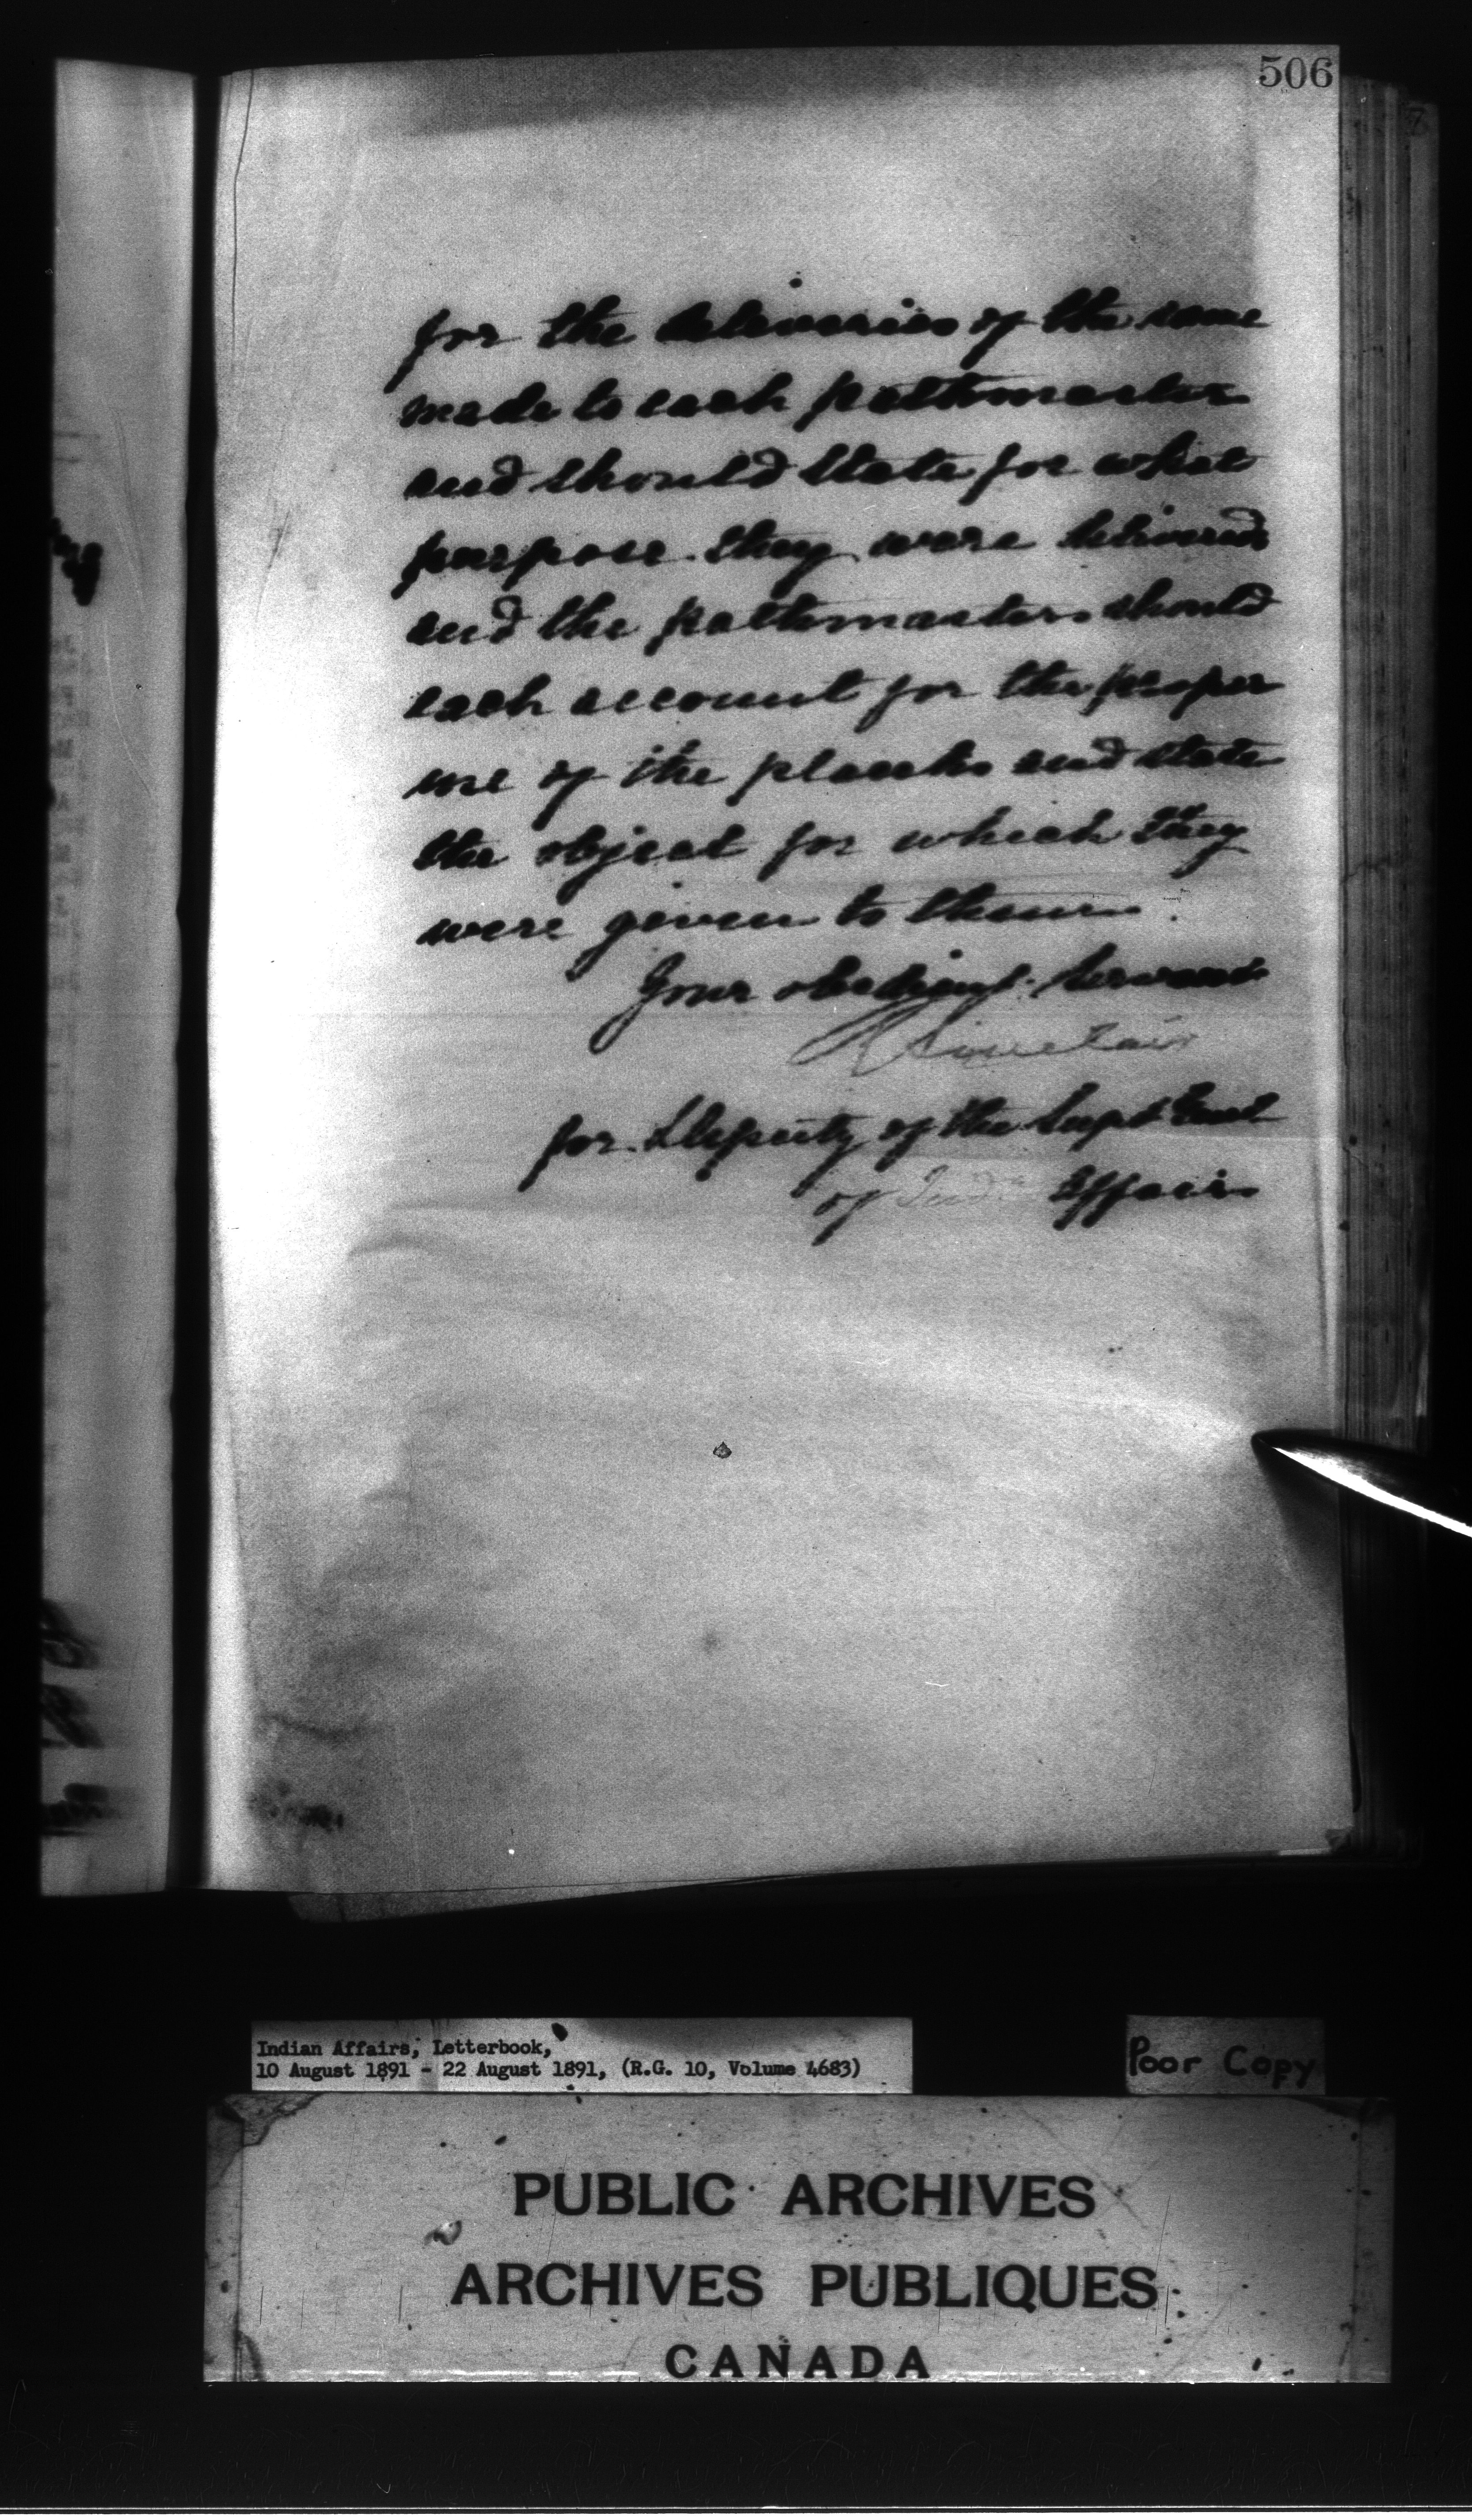 506
for the deliveries of the same
made to each pathmaster
and should state for what
purpose they were delivered
and the pathmasters should
each account for the proper
use of the planks and state
the object for which they
were given to them.
Your obedient servant
R Sinclair
for Deputy of the Supt Genl
of Indn Affairs
Indian Affairs, Letterbook,
10 August 1891 - 22 August 1891, (R.G. 10, Volume 4683)
Poor Copy
PUBLIC ARCHIVES
ARCHIVES PUBLIQUES
CANADA